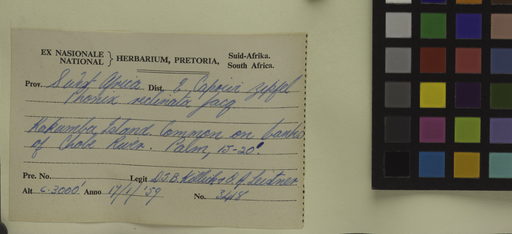 EX NASIONALE
NATIONAL } HERBARIUM, PRETORIA, Suid-Afrika.
South Africa.
Prov. S. West Africa Dist. E. Caprivi Zipfel
Phoenix reclinata Jacq
Kakumba Island Common on banks
of Chobe River. Palm, 15-20'.
Pre. No. Legit D.J.B. Killick & O.A. Leistner
Alt c. 3000' Anno 17/1/'59 No. 3418